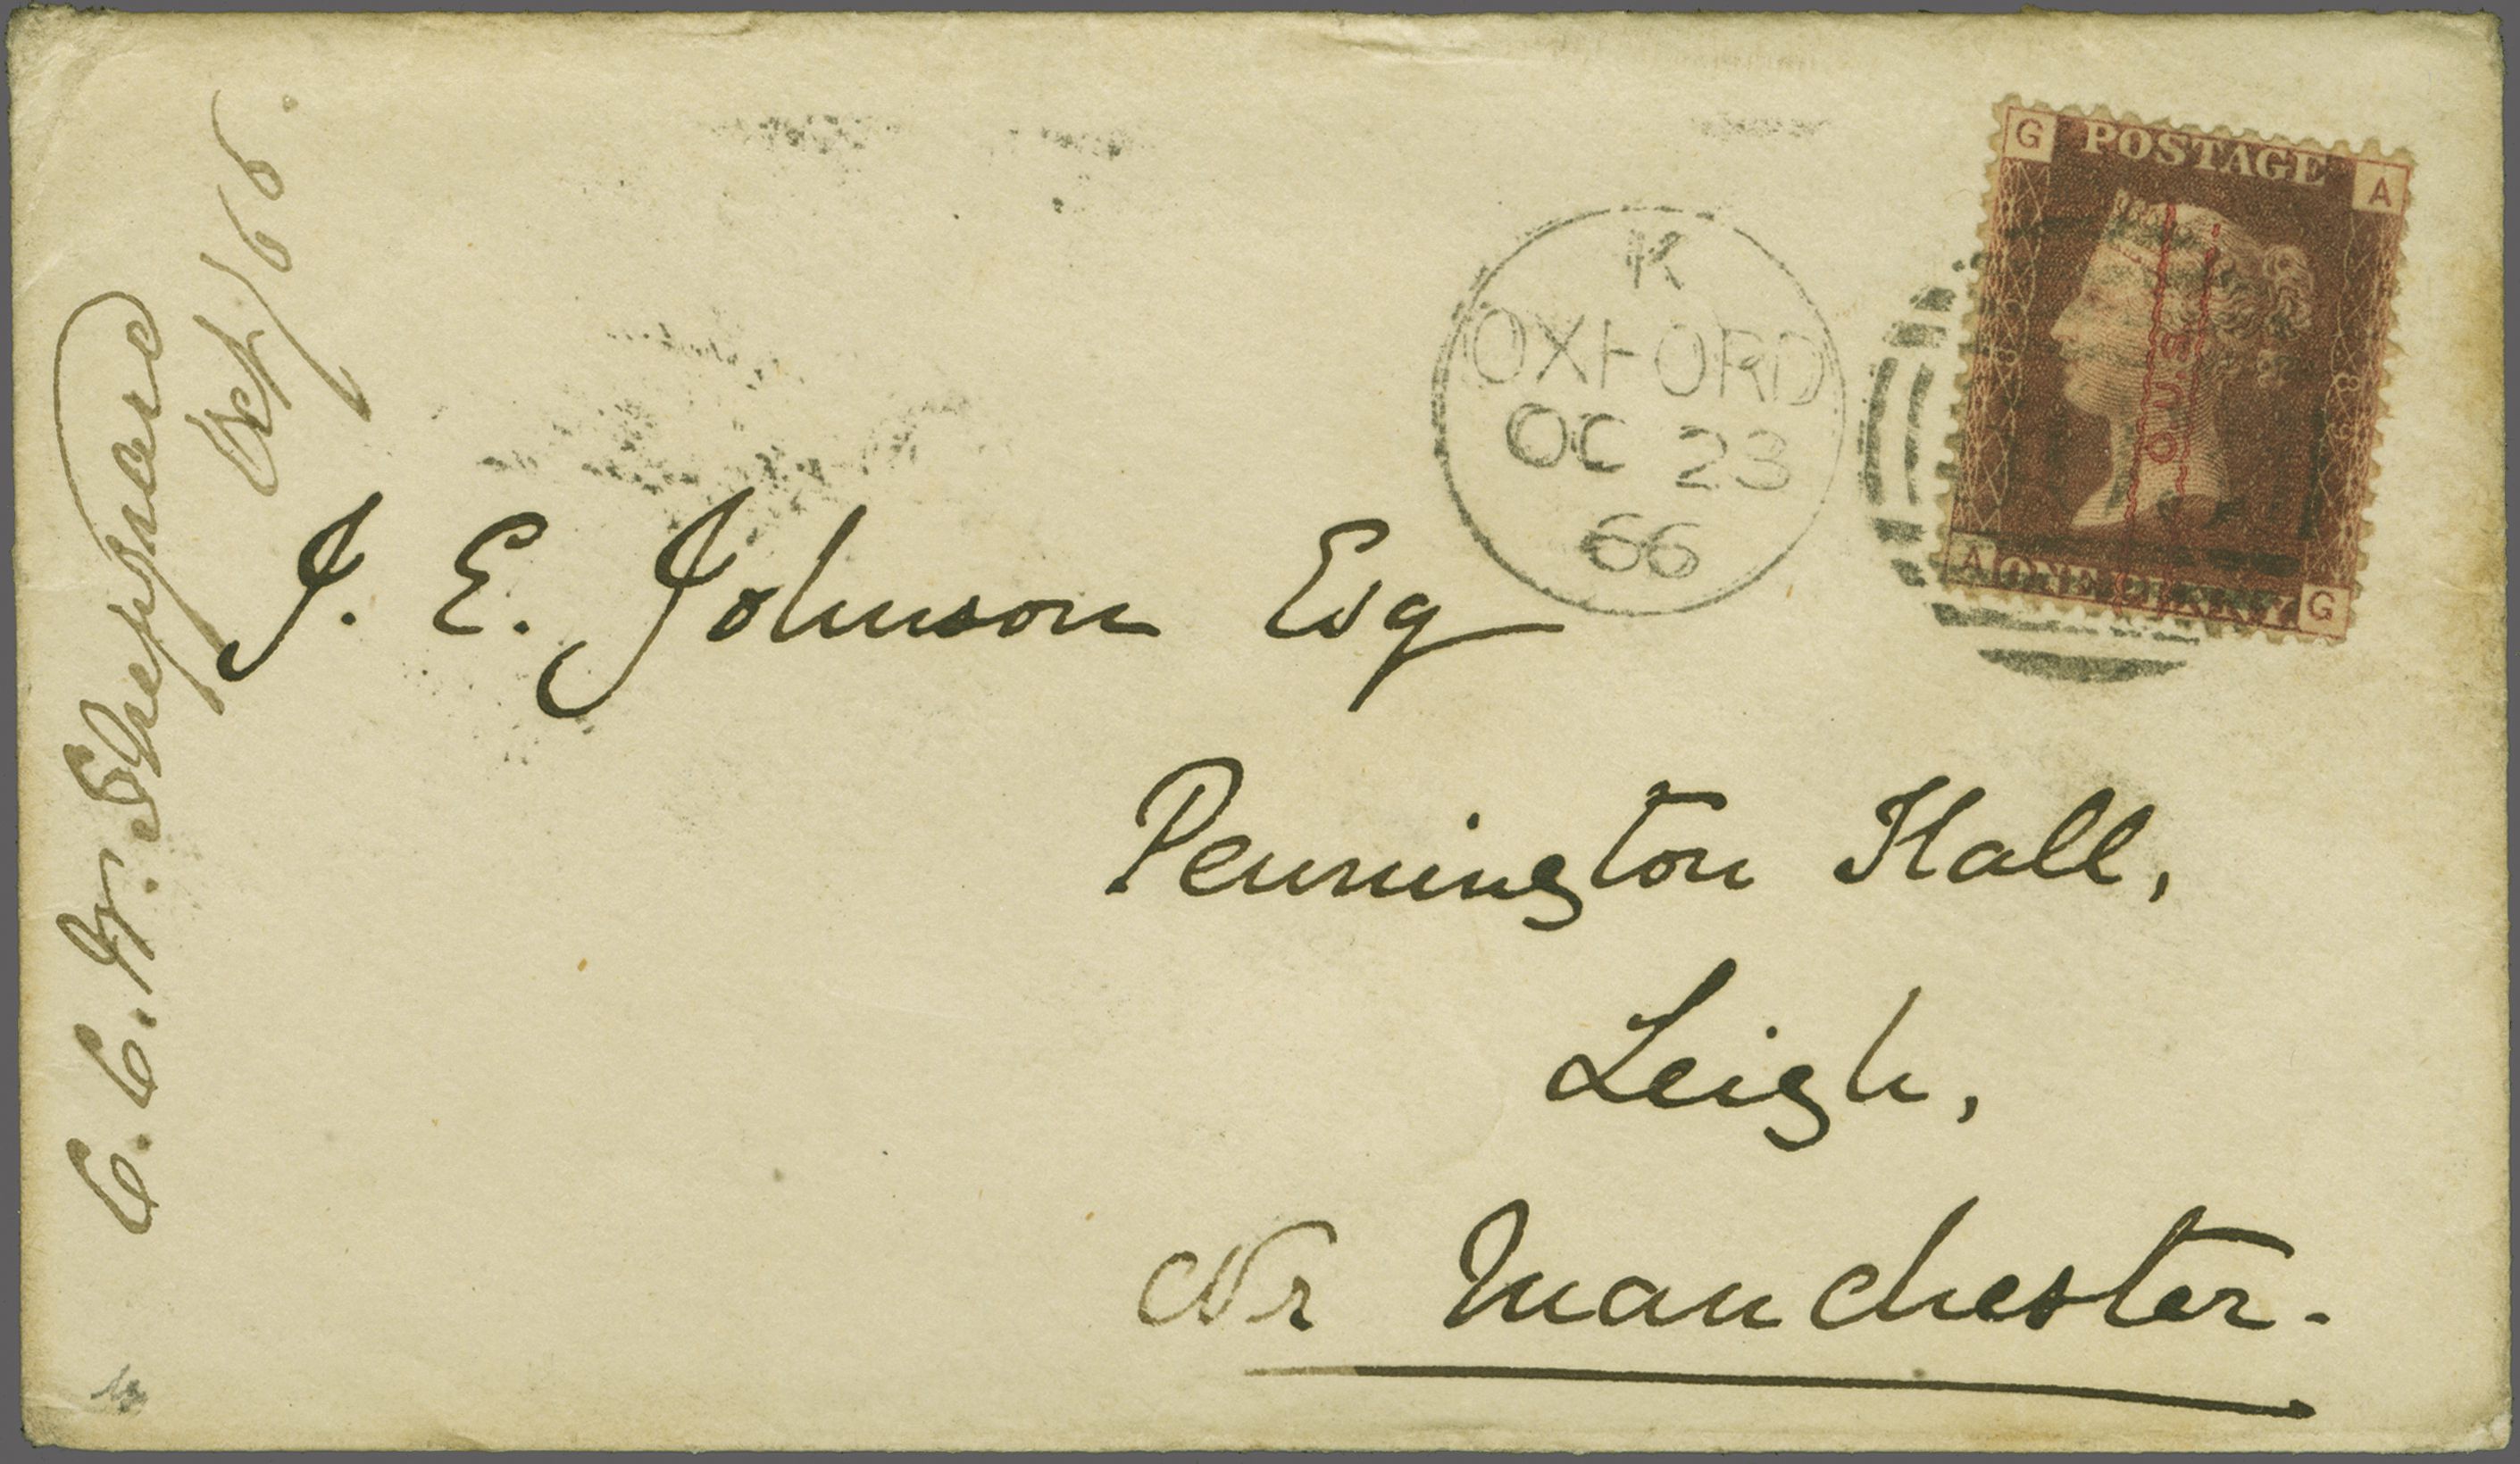 C. C. W. Sheppard
Oct/66.
J. E. Johnson Esq
Pennington Hall,
Leigh,
Nr Manchester.
K
OXFORD
OC 23
66
G POSTAGE A
O.U.S.
A ONE PENNY G